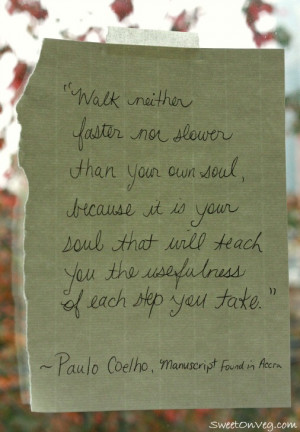 "Walk neither
faster nor slower
than your own soul,
because it is your
soul that will teach
you the usefulness
of each step you take."
~ Paulo Coelho, Manuscript Found in Accra
SweetOnVeg.com